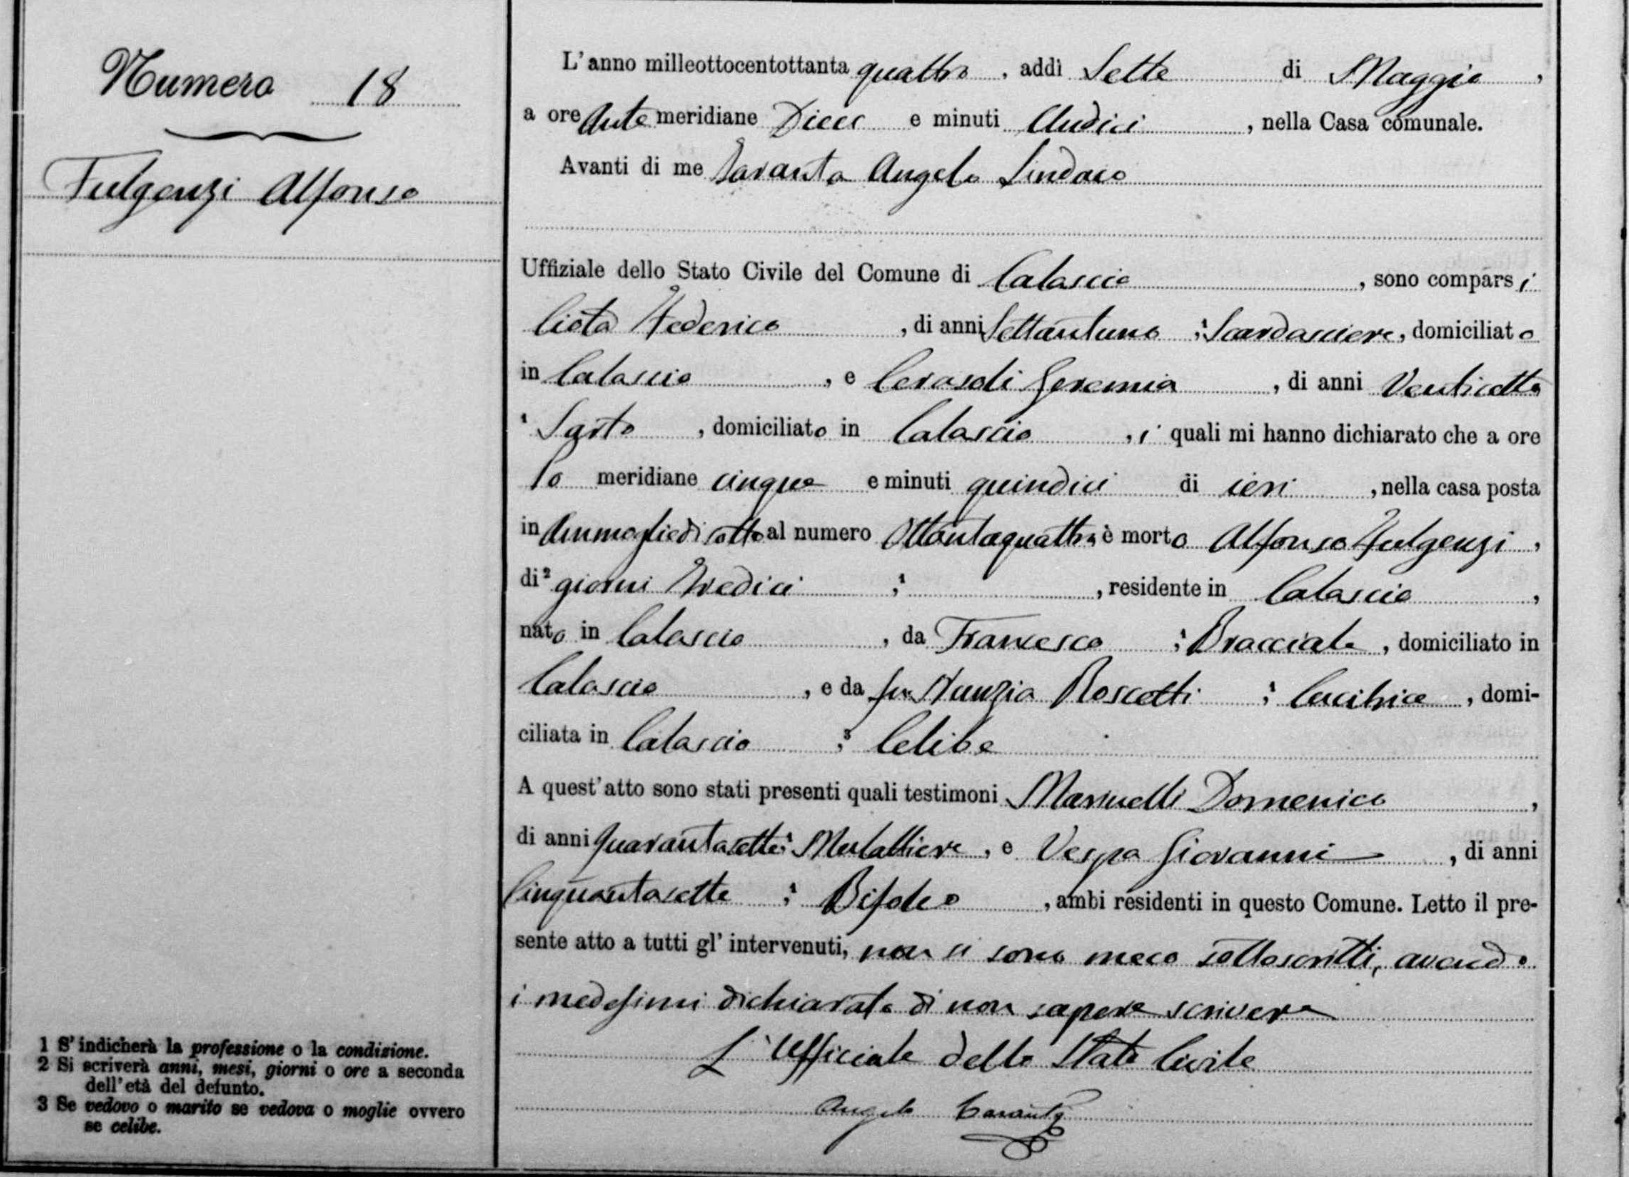 Numero 18
Fulgenzi Alfonso
L'anno milleottocentottanta quattro, addì Sette di Maggio,
a ore Ante meridiane Dieci e minuti Undici, nella Casa comunale.
Avanti di me Taranta Angelo Sindaco
Uffiziale dello Stato Civile del Comune di Calascio, sono comparsi
Federico, di anni Settantuno ;¹ Scardassiere, domiciliato
in Calascio, e Cerasoli Geremia, di anni Ventisette
¹ Sarto, domiciliato in Calascio, i quali mi hanno dichiarato che a ore
Po meridiane cinque e minuti quindici di ieri, nella casa posta
in al numero Ottantaquattro è morto Alfonso Fulgenzi,
di² giorni tredici ;¹ , residente in Calascio,
nato in Calascio, da Francesco ;¹ Bracciale, domiciliato in
Calascio, e da fu Nunzia Roscetti ;¹ Cucitrice, domi-
ciliata in Calascio ;³ Celibe
A quest'atto sono stati presenti quali testimoni Marinelli Domenico,
di anni quarantasette ;¹ Mulattiere, e Vespa Giovanni, di anni
Cinquantasette ;¹ Bifolco, ambi residenti in questo Comune. Letto il pre-
sente atto a tutti gl'intervenuti, non si sono meco sottoscritti, avendo
i medesimi dichiarato di non sapere scrivere
L'Ufficiale dello Stato Civile
Angelo Taranta
1 S'indicherà la professione o la condizione.
2 Si scriverà anni, mesi, giorni o ore a seconda
dell'età del defunto.
3 Se vedovo o marito se vedova o moglie ovvero
se celibe.